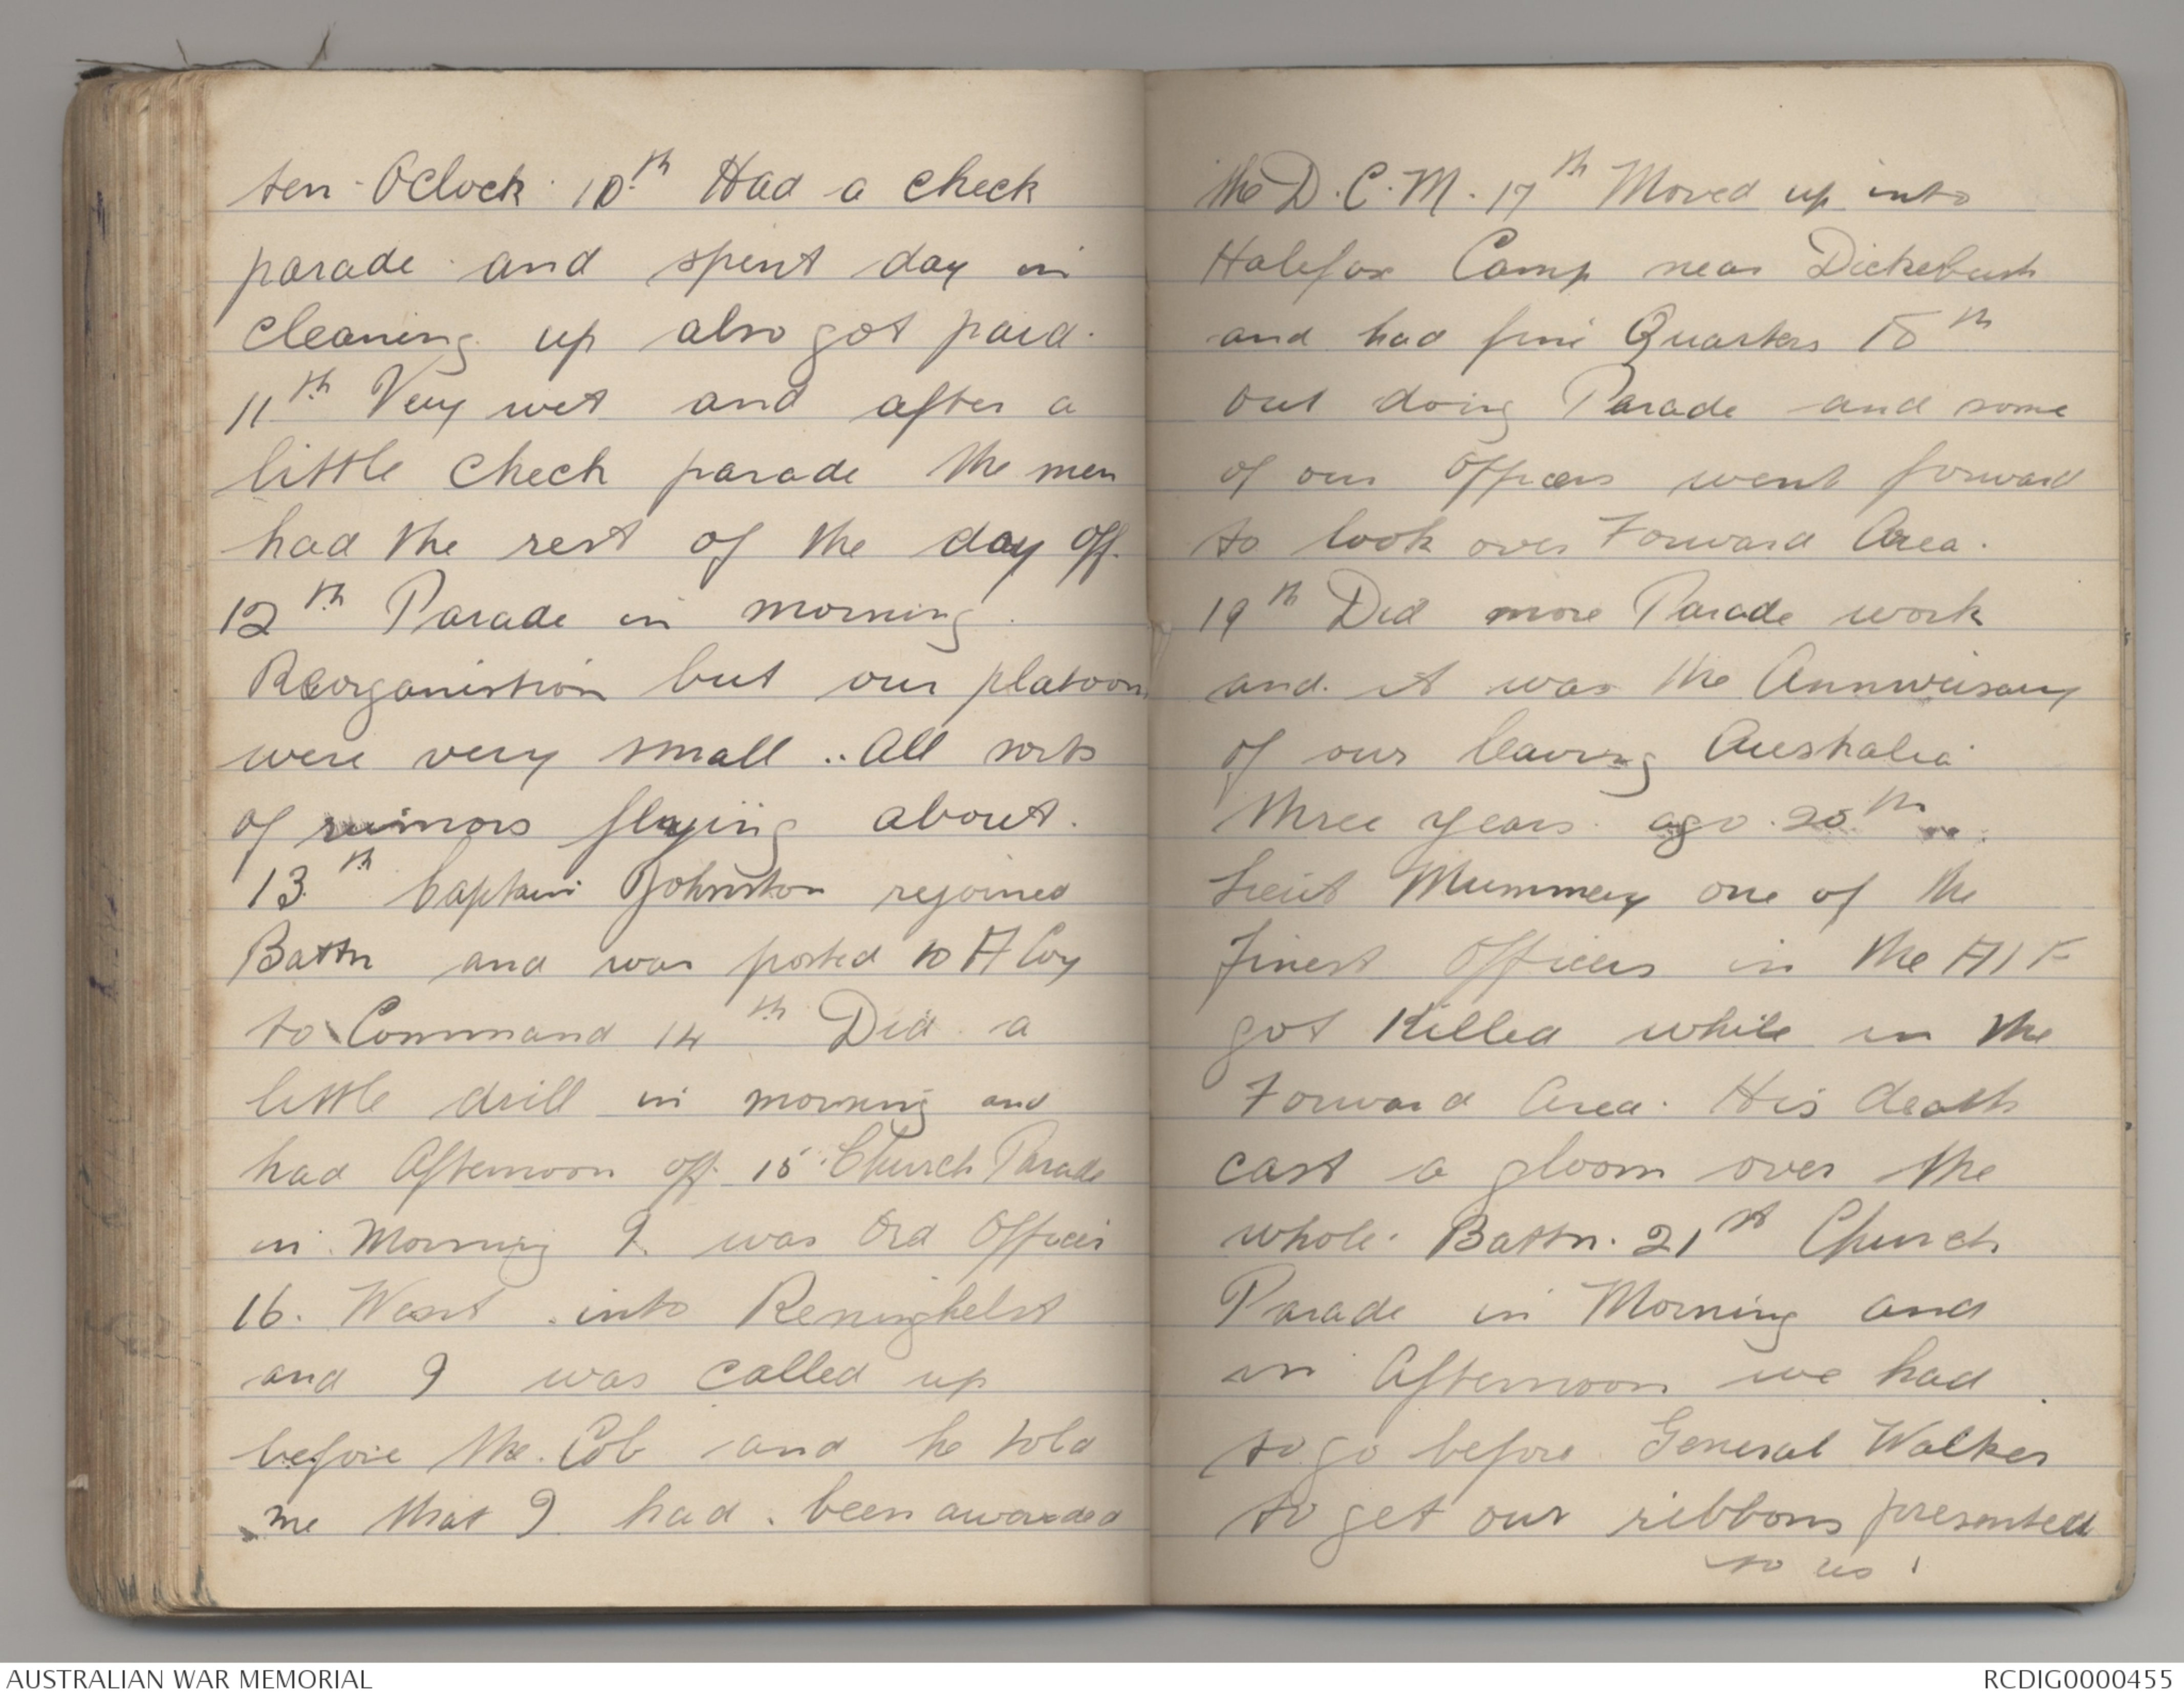 ten O'Clock 10th Had a check
parade and spent day in
cleaning up also got paid.
11th Very wet and after a
little check parade the men
had the rest of the day off.
12th Parade in morning.
Reorganistion but our platoons
were very small .. All sorts
of rumors flying about.
13th Captain Johnston rejoined
Battn and was posted to A Coy
to Command 14th Did a
little drill in morning and
had Afternoon off. 15 Church Parade
in Morning I was Ord Officer
16. Went into Reninghelst
and I was called up
before the Col and he told
me that I had been awarded
the D.C.M. 17th Moved up into
Halefax Camp near Dickebush
and had fine Quarters 18th
out doing Parade and some
of our Officers went forward
to look over Forward Area.
19th Did more Parade work
and it was the Anniversary
of our leaving Australia
three years ago. 20th
Lieut Mummery one of the
finest Officers in the AIF
got Killed while in the
Forward Area. His death
cast a gloom over the
whole Battn. 21st Church
Parade in Morning and
in Afternoon we had
to go before General Walker
to get our ribbons presented
to us.
AUSTRALIAN WAR MEMORIAL
RCDIG0000455